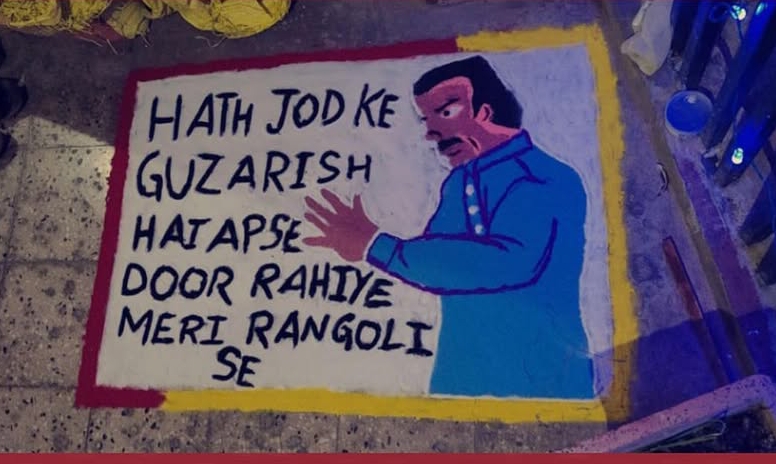 HATH JOD KE
GUZARISH
HAI APSE
DOOR RAHIYE
MERI RANGOLI
SE